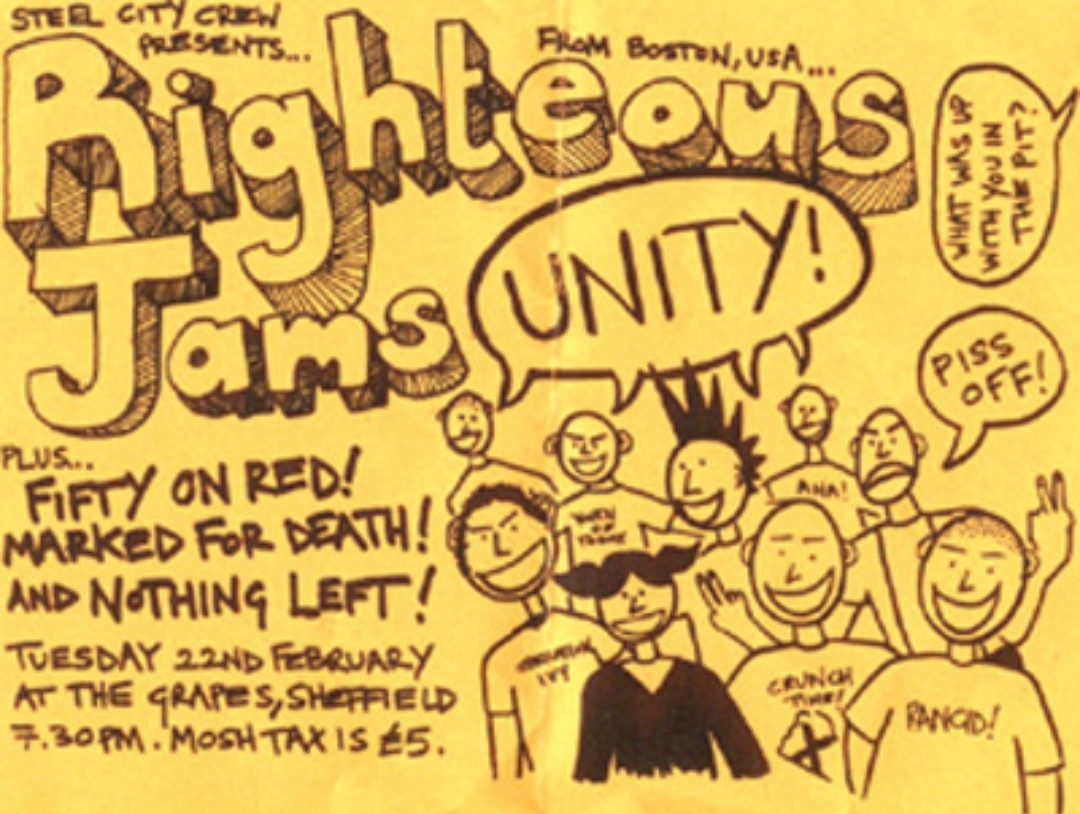 STEEL CITY CREW
PRESENTS...
FROM BOSTON, USA...
Righteous
Jams
WHAT WAS UP
WITH YOU IN
THE PIT?
UNITY!
PISS
OFF!
PLUS...
FIFTY ON RED!
MARKED FOR DEATH!
AND NOTHING LEFT!
TUESDAY 22ND FEBRUARY
AT THE GRAPES, SHEFFIELD
7.30PM. MOSH TAX IS £5.
AHA!
OPERATION
IVY
CRUNCH
TIME!
RANCID!